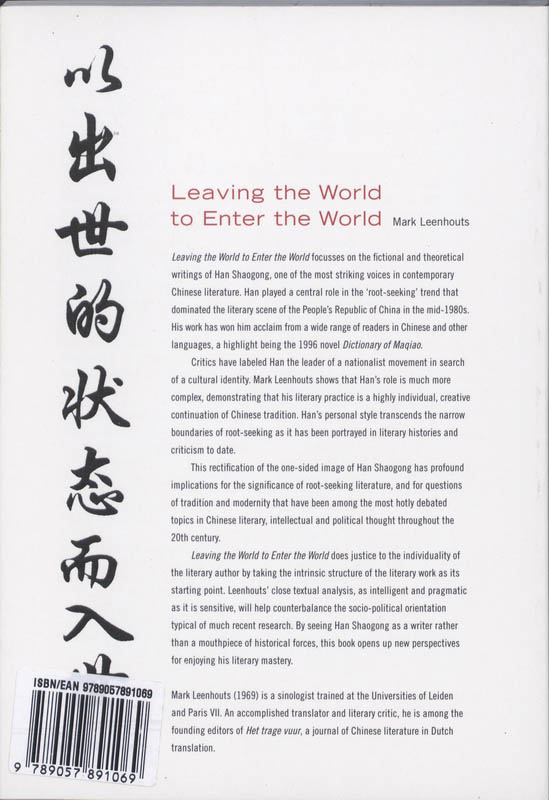 以出世的状态而入世
Leaving the World
to Enter the World Mark Leenhouts
Leaving the World to Enter the World focusses on the fictional and theoretical
writings of Han Shaogong, one of the most striking voices in contemporary
Chinese literature. Han played a central role in the ‘root-seeking’ trend that
dominated the literary scene of the People’s Republic of China in the mid-1980s.
His work has won him acclaim from a wide range of readers in Chinese and other
languages, a highlight being the 1996 novel Dictionary of Maqiao.
Critics have labeled Han the leader of a nationalist movement in search
of a cultural identity. Mark Leenhouts shows that Han’s role is much more
complex, demonstrating that his literary practice is a highly individual, creative
continuation of Chinese tradition. Han’s personal style transcends the narrow
boundaries of root-seeking as it has been portrayed in literary histories and
criticism to date.
This rectification of the one-sided image of Han Shaogong has profound
implications for the significance of root-seeking literature, and for questions
of tradition and modernity that have been among the most hotly debated
topics in Chinese literary, intellectual and political thought throughout the
20th century.
Leaving the World to Enter the World does justice to the individuality of
the literary author by taking the intrinsic structure of the literary work as its
starting point. Leenhouts’ close textual analysis, as intelligent and pragmatic
as it is sensitive, will help counterbalance the socio-political orientation
typical of much recent research. By seeing Han Shaogong as a writer rather
than a mouthpiece of historical forces, this book opens up new perspectives
for enjoying his literary mastery.
Mark Leenhouts (1969) is a sinologist trained at the Universities of Leiden
and Paris VII. An accomplished translator and literary critic, he is among the
founding editors of Het trage vuur, a journal of Chinese literature in Dutch
translation.
ISBN/EAN 9789057891069
9 789057 891069